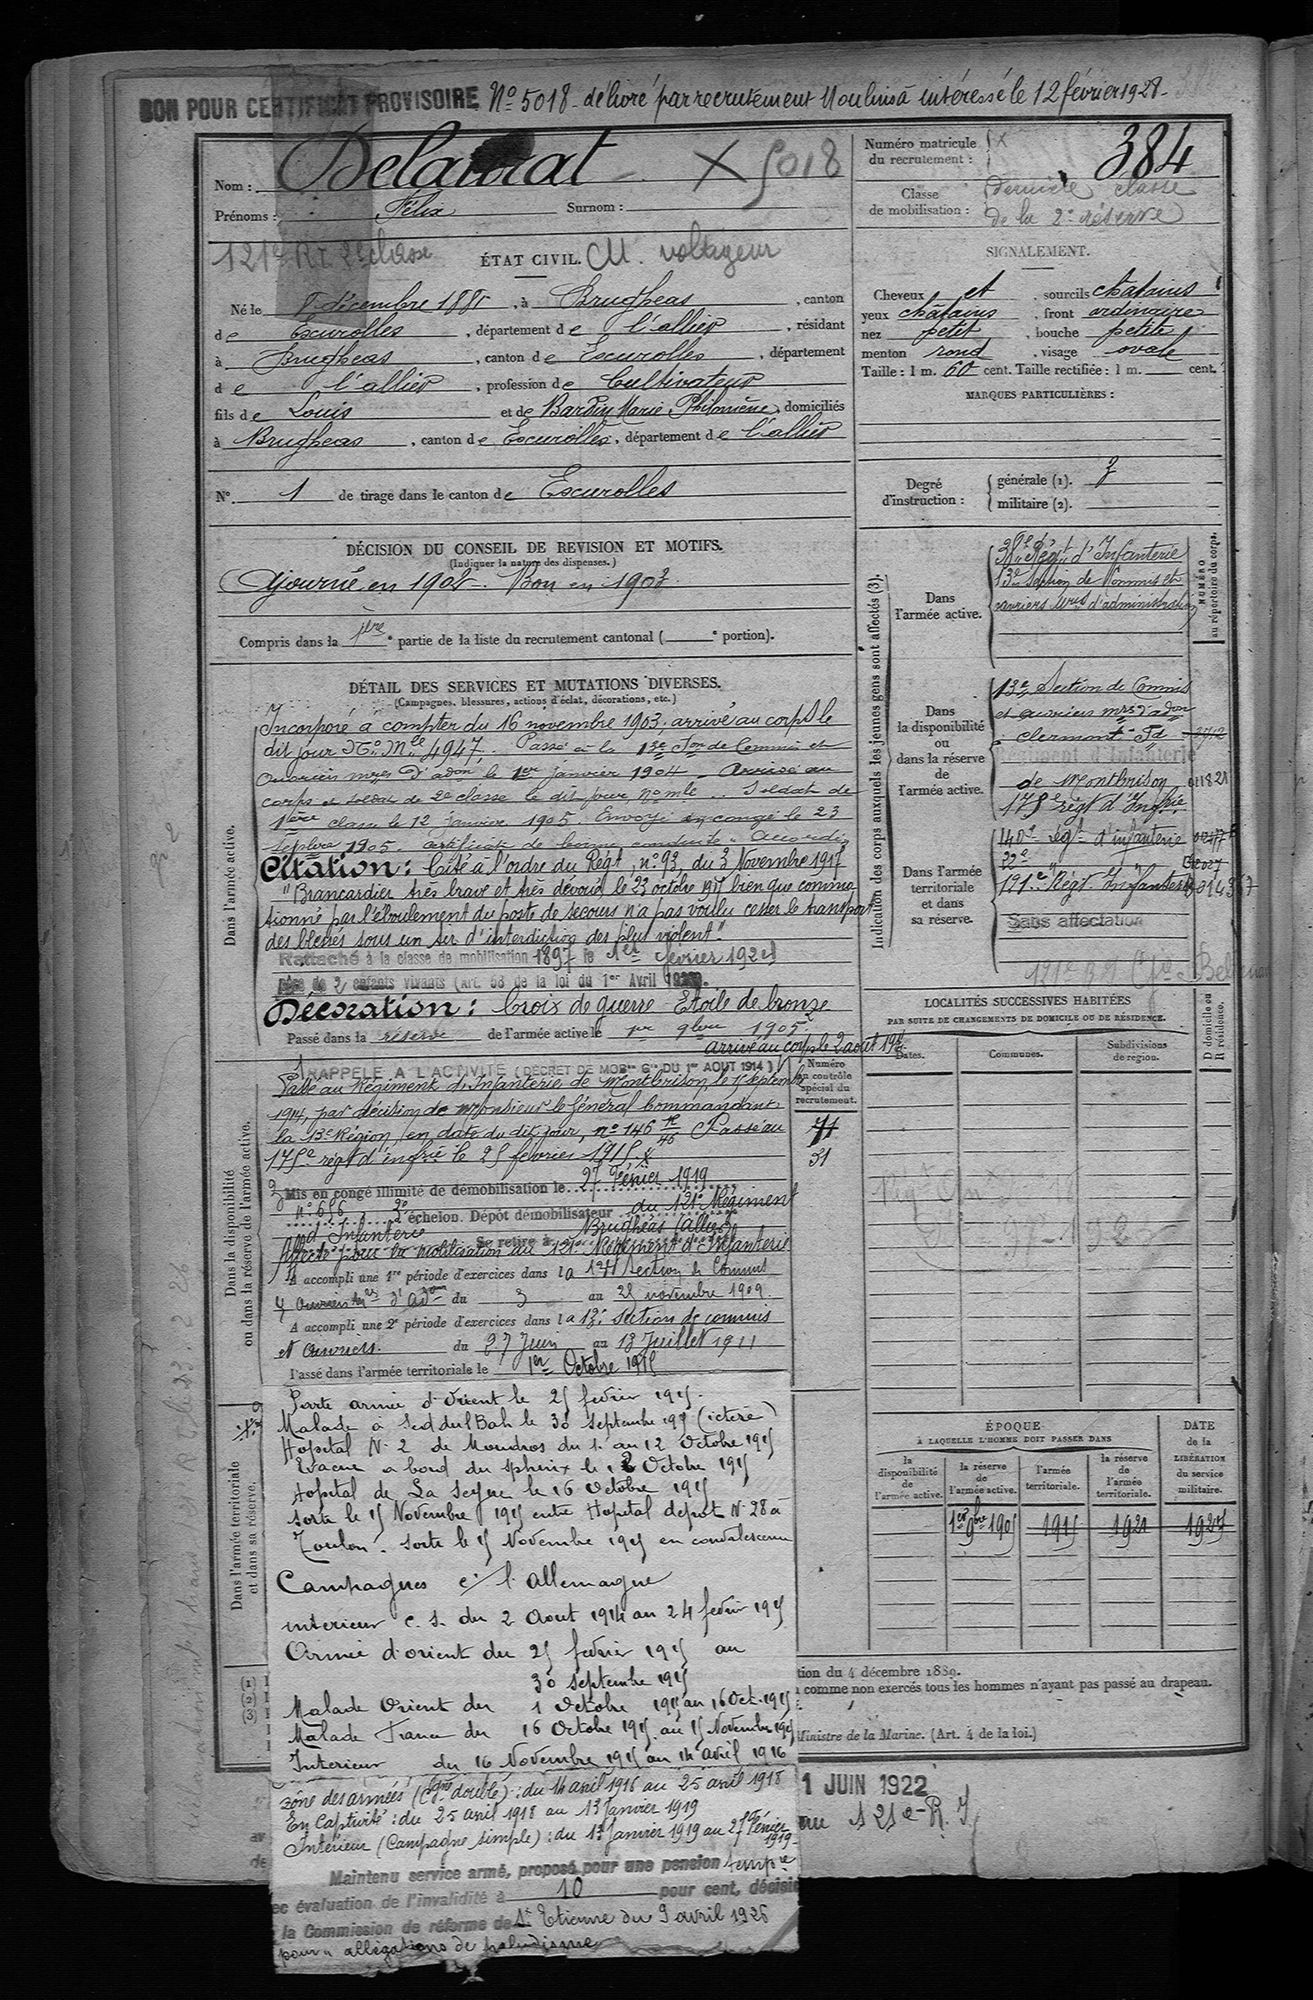 BON POUR CERTIFICAT PROVISOIRE No 5018 - délivré par recrutement Moulins à intéressé le 12 février 1928 -
Nom : Delaurat X 5018
Prénoms : Félix Surnom :
121e R.I. 2e classe
ÉTAT CIVIL. M. voltigeur
Né le décembre 188 , à Brugheas , canton
de Escurolles , département de l'allier , résidant
à Brugheas , canton de Escurolles , département
de l'allier , profession de Cultivateur
fils de Louis et de Bardin Marie Philomène , domiciliés
à Brugheas , canton de Escurolles , département de l'allier
N° 1 de tirage dans le canton de Escurolles
DÉCISION DU CONSEIL DE REVISION ET MOTIFS.
(Indiquer la nature des dispenses.)
Ajourné en 190 . Bon en 1903
Compris dans la 1ère partie de la liste du recrutement cantonal ( e portion).
DÉTAIL DES SERVICES ET MUTATIONS DIVERSES.
(Campagnes, blessures, actions d'éclat, décorations, etc.)
Dans l'armée active.
Incorporé à compter du 16 novembre 1903, arrivé au corps le
dit jour No Mle 4947. Passé à la 13e Son de Commis et
Ouvriers mres d'adon le 1er janvier 1904 - Arrivé au
corps et soldat de 2e classe le dit jour, no mle . Soldat de
1ère classe le 12 janvier 1905. Envoyé en congé le 23
septbre 1905. Certificat de bonne conduite "Accordé"
Citation : Cité à l'ordre du Régt n° 93 du 3 Novembre 1917
"Brancardier très brave et très dévoué, le 23 octobre 1917 bien que commo-
tionné par l'éboulement du poste de secours n'a pas voulu cesser le transport
des blessés sous un tir d'interdiction des plus violent".
Rattaché à la classe de mobilisation 1897 le 1er février 192
père de 2 enfants vivants (Art. 58 de la loi du 1er Avril 1923).
Décoration : Croix de guerre Etoile de bronze
Passé dans la réserve de l'armée active le 1er 9bre 1905
arrivé au corps le 2 aout 1914
Dans la disponibilité
ou dans la réserve de l'armée active.
RAPPELÉ A L'ACTIVITÉ (DÉCRET DE MOBon Gle DU 1er AOUT 1914)
Passé au Régiment d'Infanterie de Montbrison, le 1 septembre
1914, par décision de Monsieur le Général Commandant
la 13e Région, en date du dit jour, n° 146 Passé au
175e régt d'infrie le 25 février 1915.
Mis en congé illimité de démobilisation le 27 Février 1919
n° 656 3e échelon. Dépôt démobilisateur du 121e Régiment
d'Infanterie Se retire à Brugheas (Allier)
Affecté pour la mobilisation au 121e Régiment d'Infanterie
A accompli une 1re période d'exercices dans la 14e Section de Commis
& Ouvriers Mres d'Adon du 3 au 25 novembre 1909.
A accompli une 2e période d'exercices dans la 13e Section de commis
et Ouvriers. du 27 Juin au 13 Juillet 1911
Passé dans l'armée territoriale le 1er Octobre 1915
Numéro
au contrôle
spécial du
recrutement.
31
Dans l'armée territoriale
et dans sa réserve.
Parti armée d'Orient le 25 février 1915.
Malade à Sed dul Bah le 30 septembre 1915 (ictère)
Hopital N° 2 de Moudros du 1. au 12 Octobre 1915
Evacué a bord du Sphinx le Octobre 1915
Hopital de La Seyne le 16 Octobre 1915
sorti le 15 Novembre 1915 entré Hopital depot N° 28 à
Toulon. sorti le 15 Novembre 1915 en convalescence
Campagnes c/ l'allemagne
interieur c. s. du 2 Aout 1914 au 24 fevrier 1915
Armée d'orient du 25 fevrier 1915 au
30 septembre 1915
Malade Orient du 1 Octobre 1915 au 16 Oct. 1915
Malade France du 16 Octobre 1915 au 15 Novembre 1915
Interieur du 16 Novembre 1915 au 14 avril 1916
zône des armées (Cgne double) : du 14 avril 1916 au 25 avril 1918
En Captivité : du 25 avril 1918 au 13 Janvier 1919
Intérieur (Campagne simple) : du 13 Janvier 1919 au 27 Février
1919
Maintenu service armé, proposé pour une pension tempre
ec évaluation de l'invalidité à 10 pour cent, décisio
la Commission de réforme de St Etienne du 9 avril 1926
pour " allégations de paludisme
Numéro matricule
du recrutement : 384
Classe
de mobilisation : Dernière classe
de la 2e réserve
SIGNALEMENT.
Cheveux et , sourcils chatains
yeux châtains , front ordinaire
nez petit , bouche petite
menton rond , visage ovale
Taille : 1 m. 60 cent. Taille rectifiée : 1 m. cent.
MARQUES PARTICULIÈRES :
Degré
d'instruction :
générale (1). 3
militaire (2).
Indication des corps auxquels les jeunes gens sont affectés (3).
NUMÉRO
au répertoire du corps.
Dans
l'armée active.
38e Régt d'Infanterie
13e Section de Commis et
ouvriers mres d'administration
Dans
la disponibilité
ou
dans la réserve
de
l'armée active.
13e Section de Commis
et ouvriers mres d'adon
Clermont-Fd
Régiment d'Infanterie
de Montbrison 011821
175e régt d'Infrie
Dans l'armée
territoriale
et dans
sa réserve.
140e régt d'infanterie
32e " "
121e Régt Infanterie
Sans affectation
LOCALITÉS SUCCESSIVES HABITÉES
PAR SUITE DE CHANGEMENTS DE DOMICILE OU DE RÉSIDENCE.
Dates. Communes. Subdivisions
de région. D domicile ou
R résidence.
ÉPOQUE
À LAQUELLE L'HOMME DOIT PASSER DANS
DATE
de la
LIBÉRATION
du service
militaire.
la
disponibilité
de
l'armée active.
la réserve
de
l'armée active.
l'armée
territoriale.
la réserve
de
l'armée
territoriale.
1er 9bre 1905 1915 1921 192
tion du 4 décembre 1889.
comme non exercés tous les hommes n'ayant pas passé au drapeau.
Ministre de la Marine. (Art. 4 de la loi.)
1 JUIN 1922
au 121e R.I.